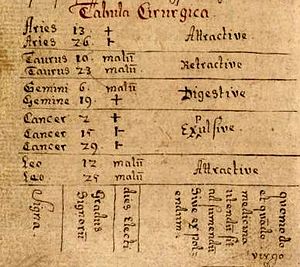 Tabula Cirurgica
Aries 13 +
Aries 26 + Attractive
Taurus 10. malū
Taurus 23 malū Retractive
Gemini 6. malū
Gemine 19. + Digestive
Cancer 2 +
Cancer 15 + Expulsive.
Cancer 29 +
Leo 12 malū
Leo 25 malū Attractive
Signa
Gradus
Signorū
dies Electi
quomodo
et quādo
medicina
utendū sit
ad sumendū
Siue
virgo